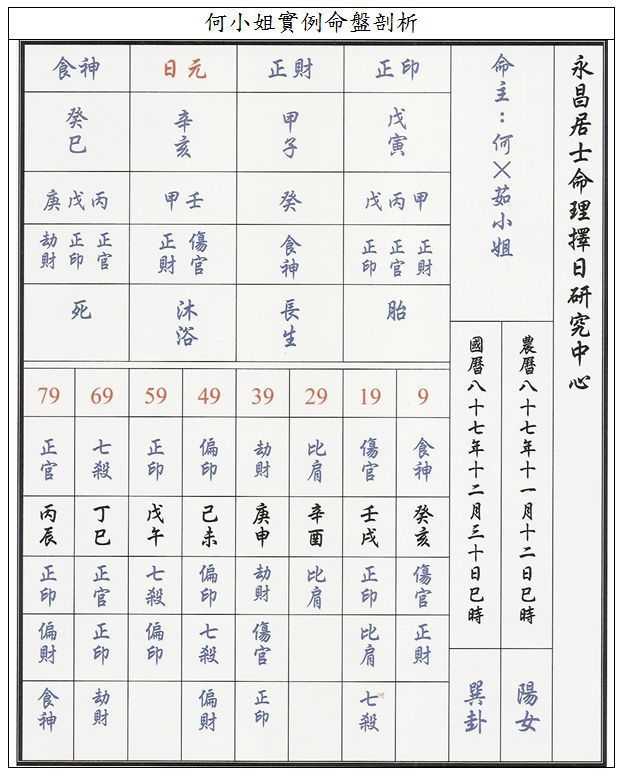 何小姐實例命盤剖析
永昌居士命理擇日研究中心
命主：何×茹小姐
農曆八十七年十一月十二日巳時
國曆八十七年十二月三十日巳時
陽女
巽卦
食神 日元 正財 正印
癸巳 辛亥 甲子 戊寅
庚戊丙 甲壬 癸 戊丙甲
劫財 正印 正官 正財 傷官 食神 正印 正官 正財
死 沐浴 長生 胎
79 69 59 49 39 29 19 9
正官 七殺 正印 偏印 劫財 比肩 傷官 食神
丙辰 丁巳 戊午 己未 庚申 辛酉 壬戌 癸亥
正印 正官 七殺 偏印 劫財 比肩 正印 傷官
偏財 正印 偏印 七殺 傷官 比肩 正財
食神 劫財 偏財 正印 七殺